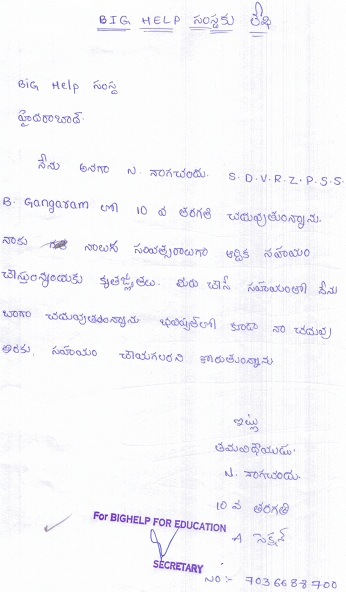 BIG HELP సంస్థకు లేఖ
BiG Help సంస్థ
హైదరాబాద్.
నేను అనగా N. నాగచందు. S.D.V.R.Z.P.S.S.
B. Gangaram లో 10 వ తరగతి చదువుతున్నాను.
నాకు నాలుగు సంవత్సరాలుగా ఆర్థిక సహాయం
చేస్తున్నందుకు కృతజ్ఞతలు. మీరు చేసే సహాయంతో నేను
బాగా చదువుతున్నాను భవిష్యత్‌లో కూడా నా చదువు
వరకు, సహాయం చేయగలరని కోరుతున్నాను
ఇట్లు
తమ విధేయుడు.
N. నాగచందు.
10 వ తరగతి
A సెక్షన్
For BIGHELP FOR EDUCATION
SECRETARY
NO :- 7036688700